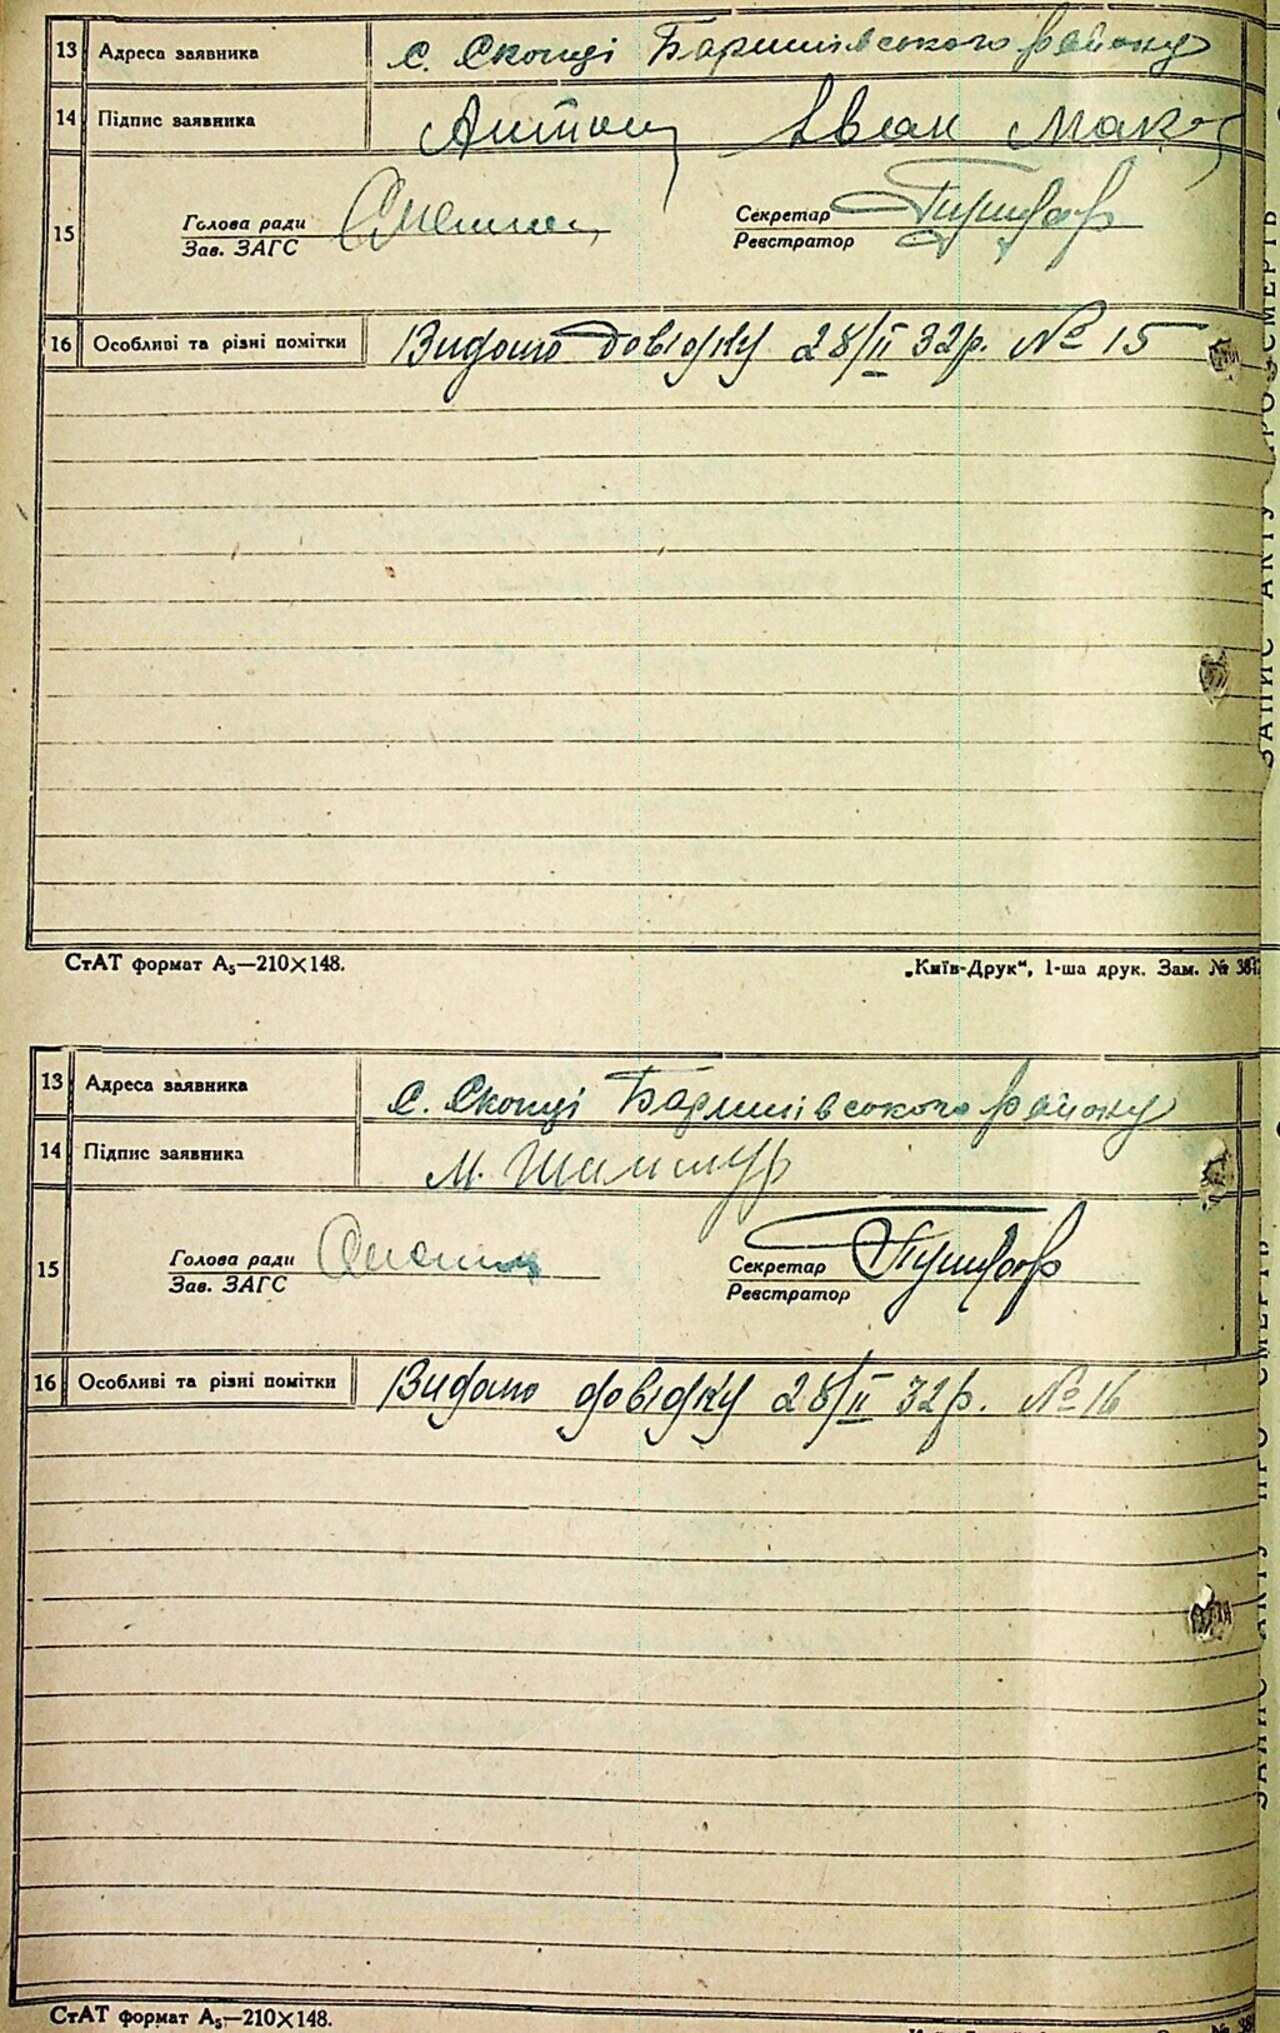 13 Адреса заявника с. Скопці Баришівського району
14 Підпис заявника Антонец Іван Макар
15
Голова ради
Зав. ЗАГС
Секретар
Реєстратор
16 Особливі та різні помітки Видано довідку 28/II 32р. № 15
СтАТ формат А5—210×148.
„Київ-Друк“, 1-ша друк. Зам. №
13 Адреса заявника с. Скопці Баришівського району
14 Підпис заявника М.
15
Голова ради
Зав. ЗАГС
Секретар
Реєстратор
16 Особливі та різні помітки Видано довідку 28/II 32р. № 16
СтАТ формат А5—210×148.
ЗАПИС АКТУ ПРО СМЕРТЬ
ЗАПИС АКТУ ПРО СМЕРТЬ